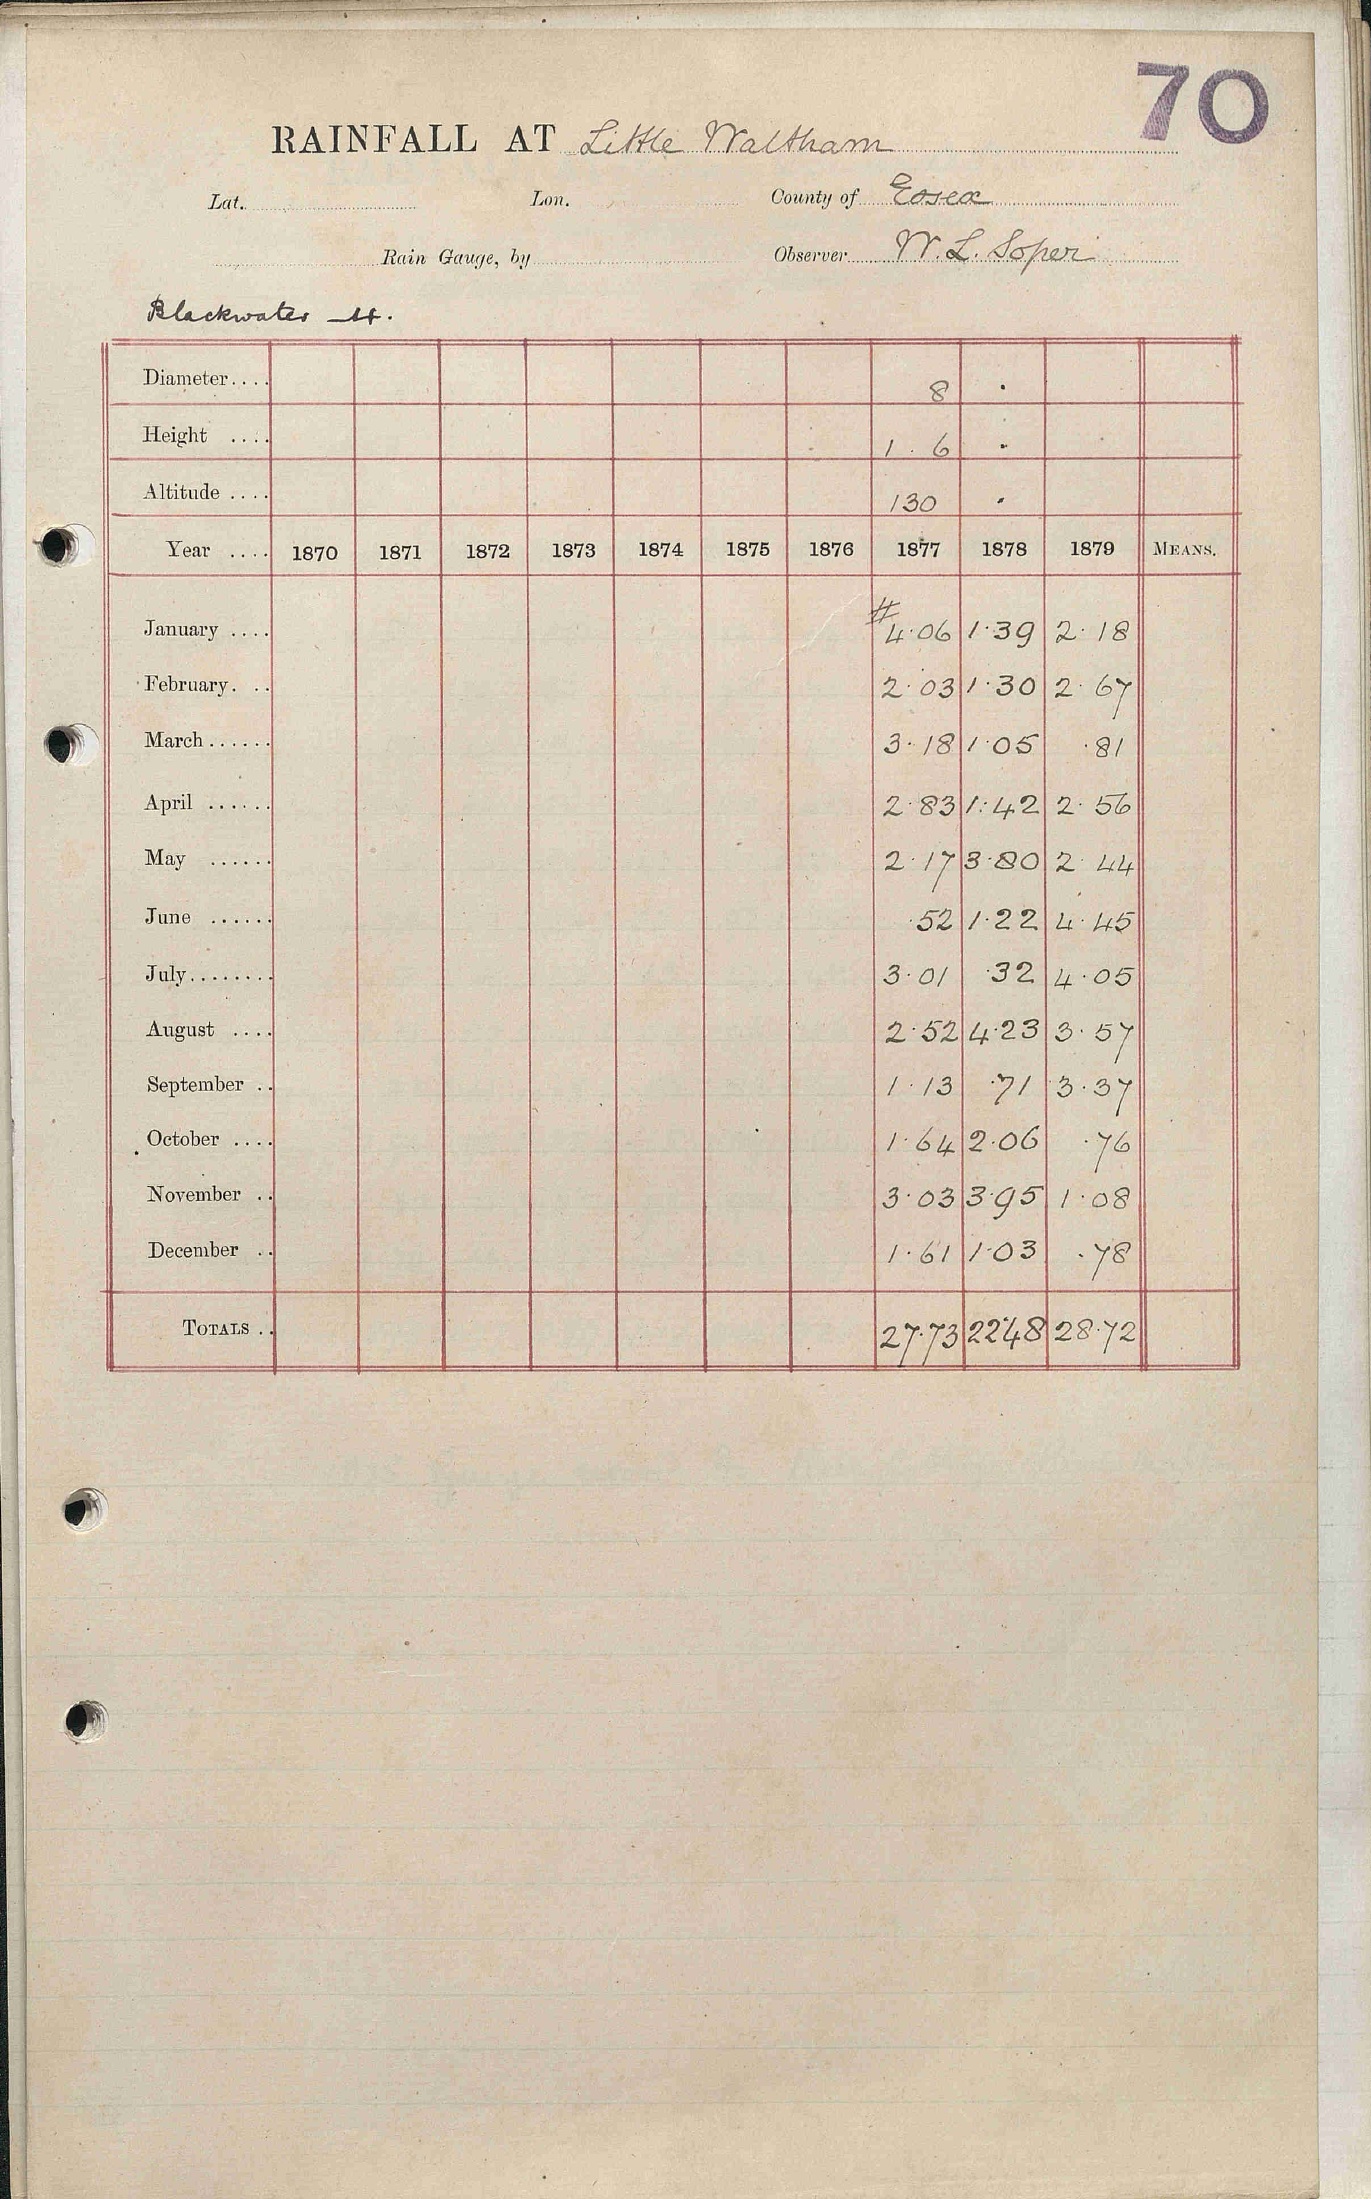 70
RAINFALL AT Little Waltham
Lat. Lon. County of Essex
Rain Gauge, by Observer W. L. Soper
Blackwater
Diameter.... 8 .
Height .... 1 . 6 .
Altitude .... 130 .
Year .... 1870 1871 1872 1873 1874 1875 1876 1877 1878 1879 MEANS.
January .... #4.06 1.39 2.18
February. .. 2.03 1.30 2.67
March...... 3.18 1.05 .81
April ...... 2.83 1.42 2.56
May ...... 2.17 3.80 2.44
June ...... .52 1.22 4.45
July........ 3.01 .32 4.05
August .... 2.52 4.23 3.57
September .. 1.13 .71 3.37
October .... 1.64 2.06 .76
November .. 3.03 3.95 1.08
December .. 1.61 1.03 .78
TOTALS .. 27.73 22.48 28.72